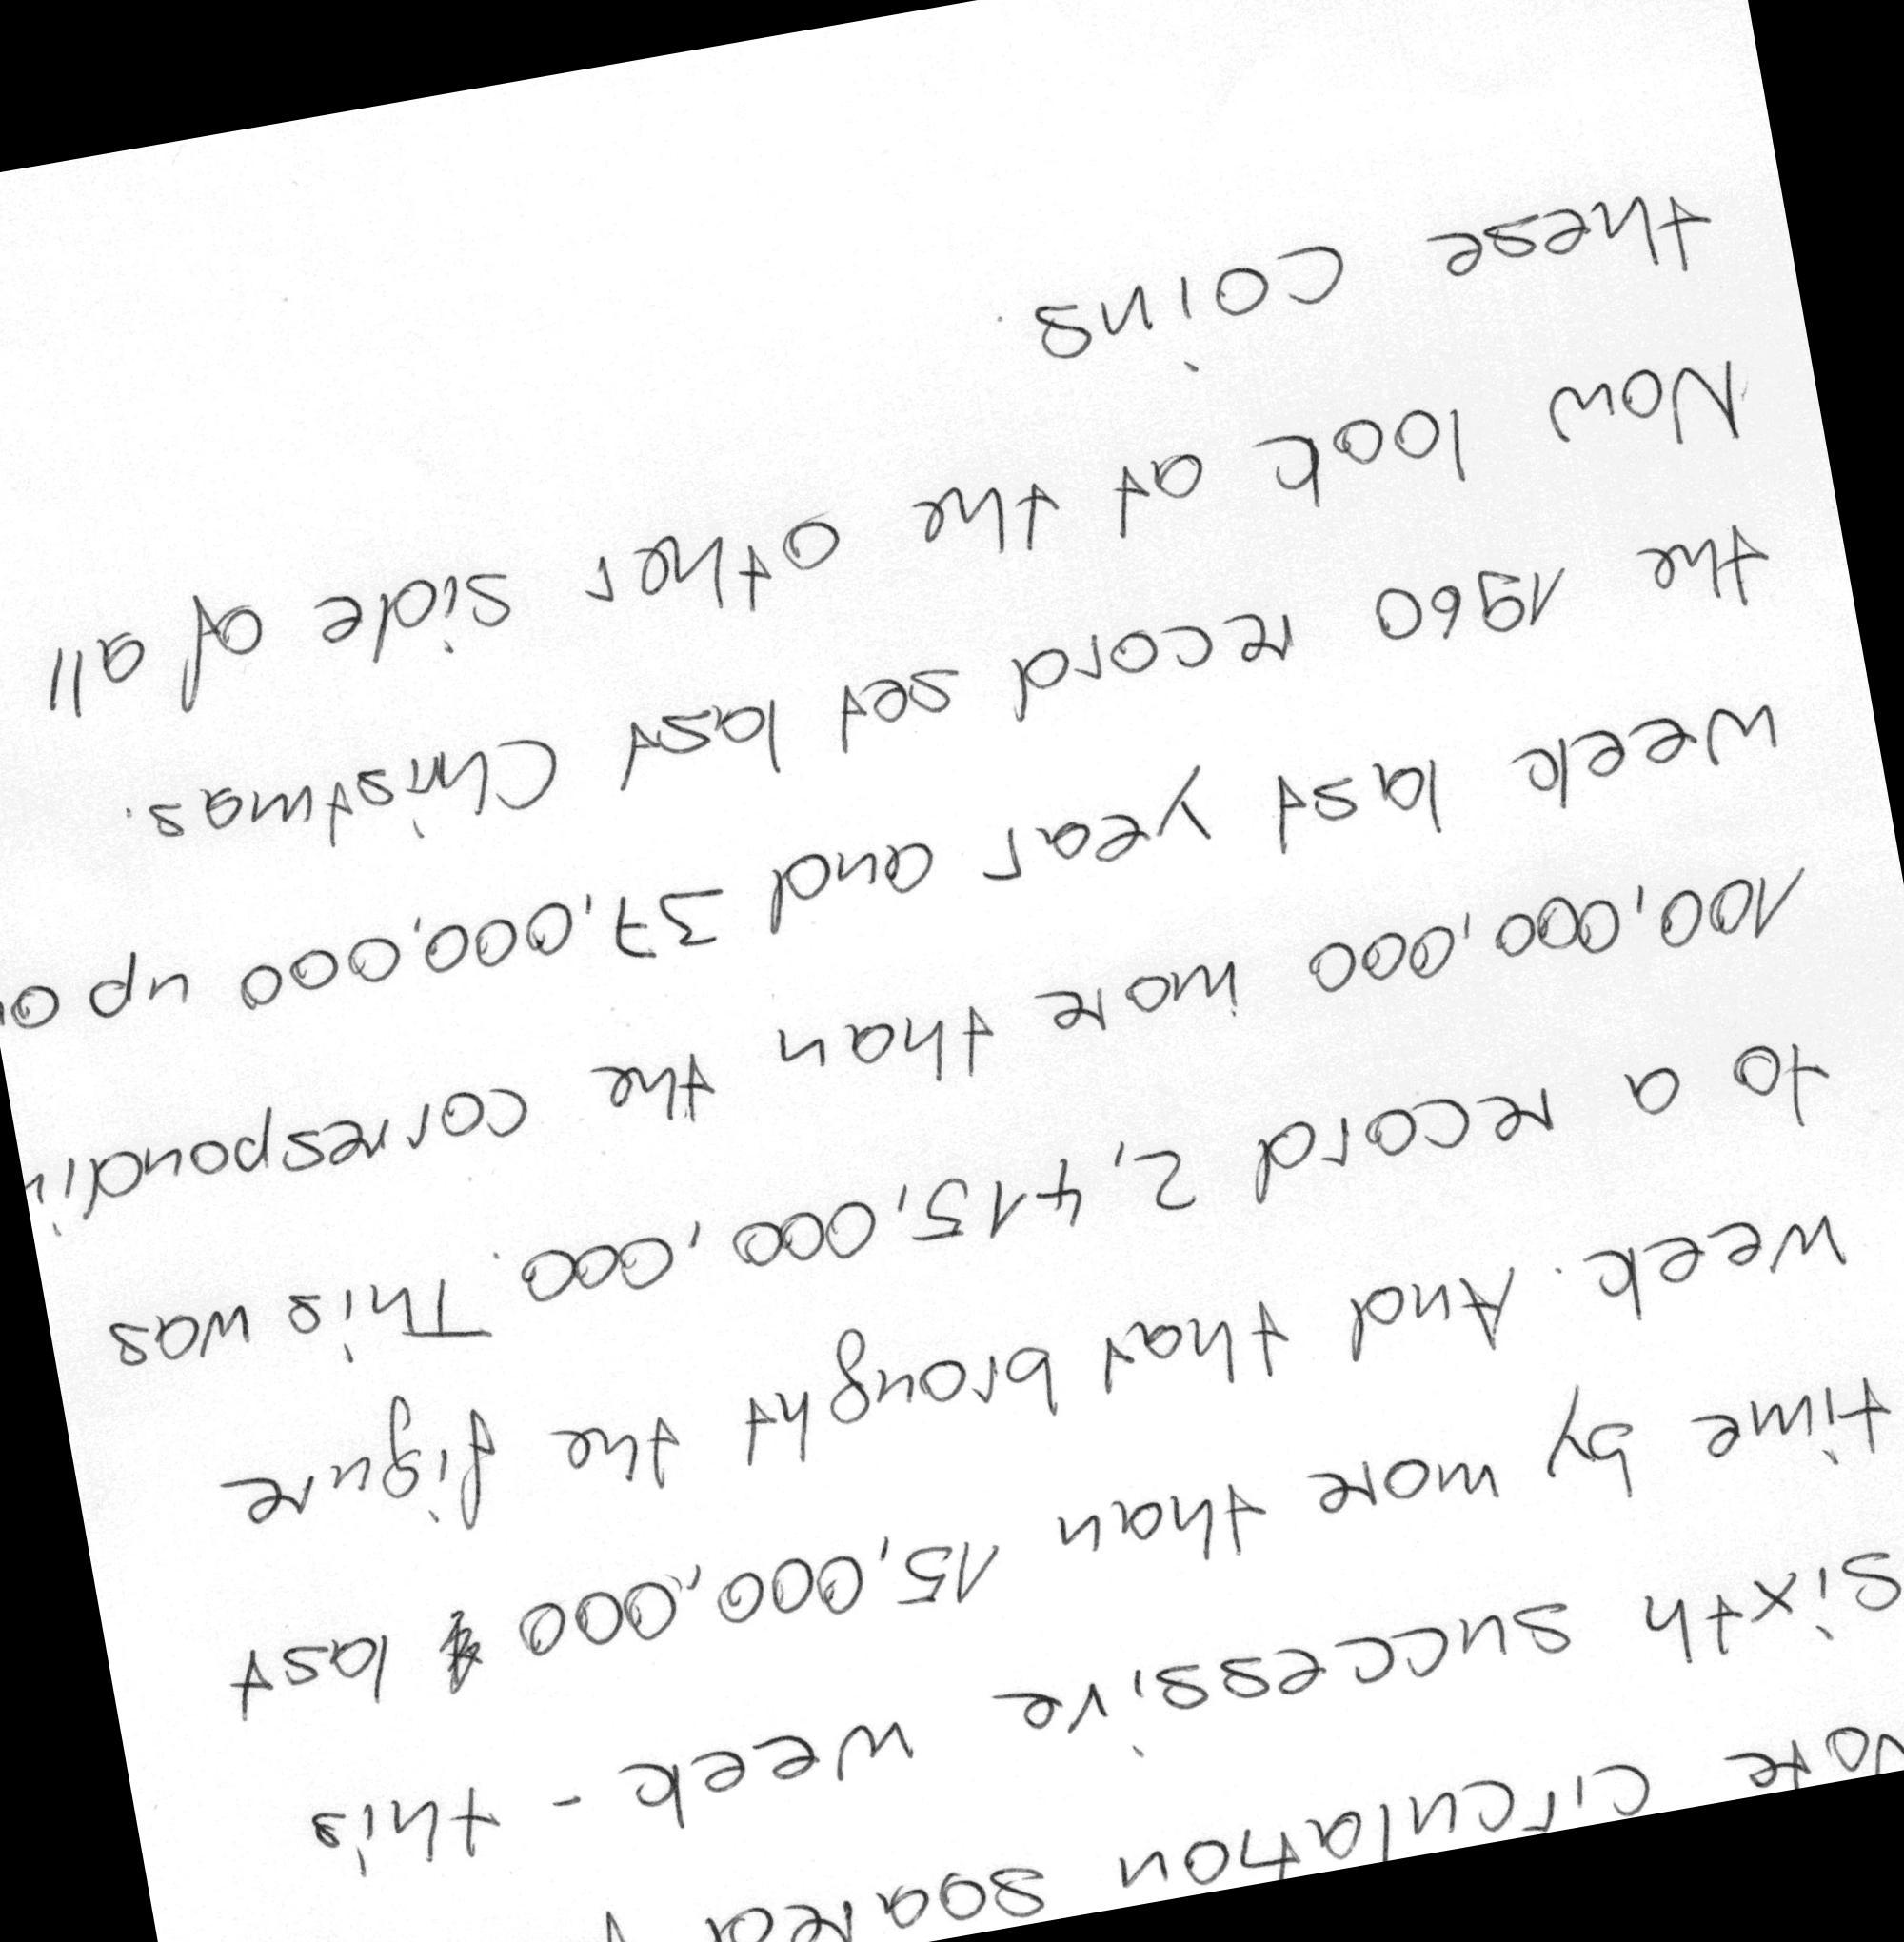 circulation soared
sixth successive week - this
time by more than 15,000,000 last
week. And that brought the figure
to a record 2,415,000,000. This was
100,000,000 more than the
week last year and 37,000,000 up
the 1960 record set last Christmas.
Now look at the other side of all
these coins.